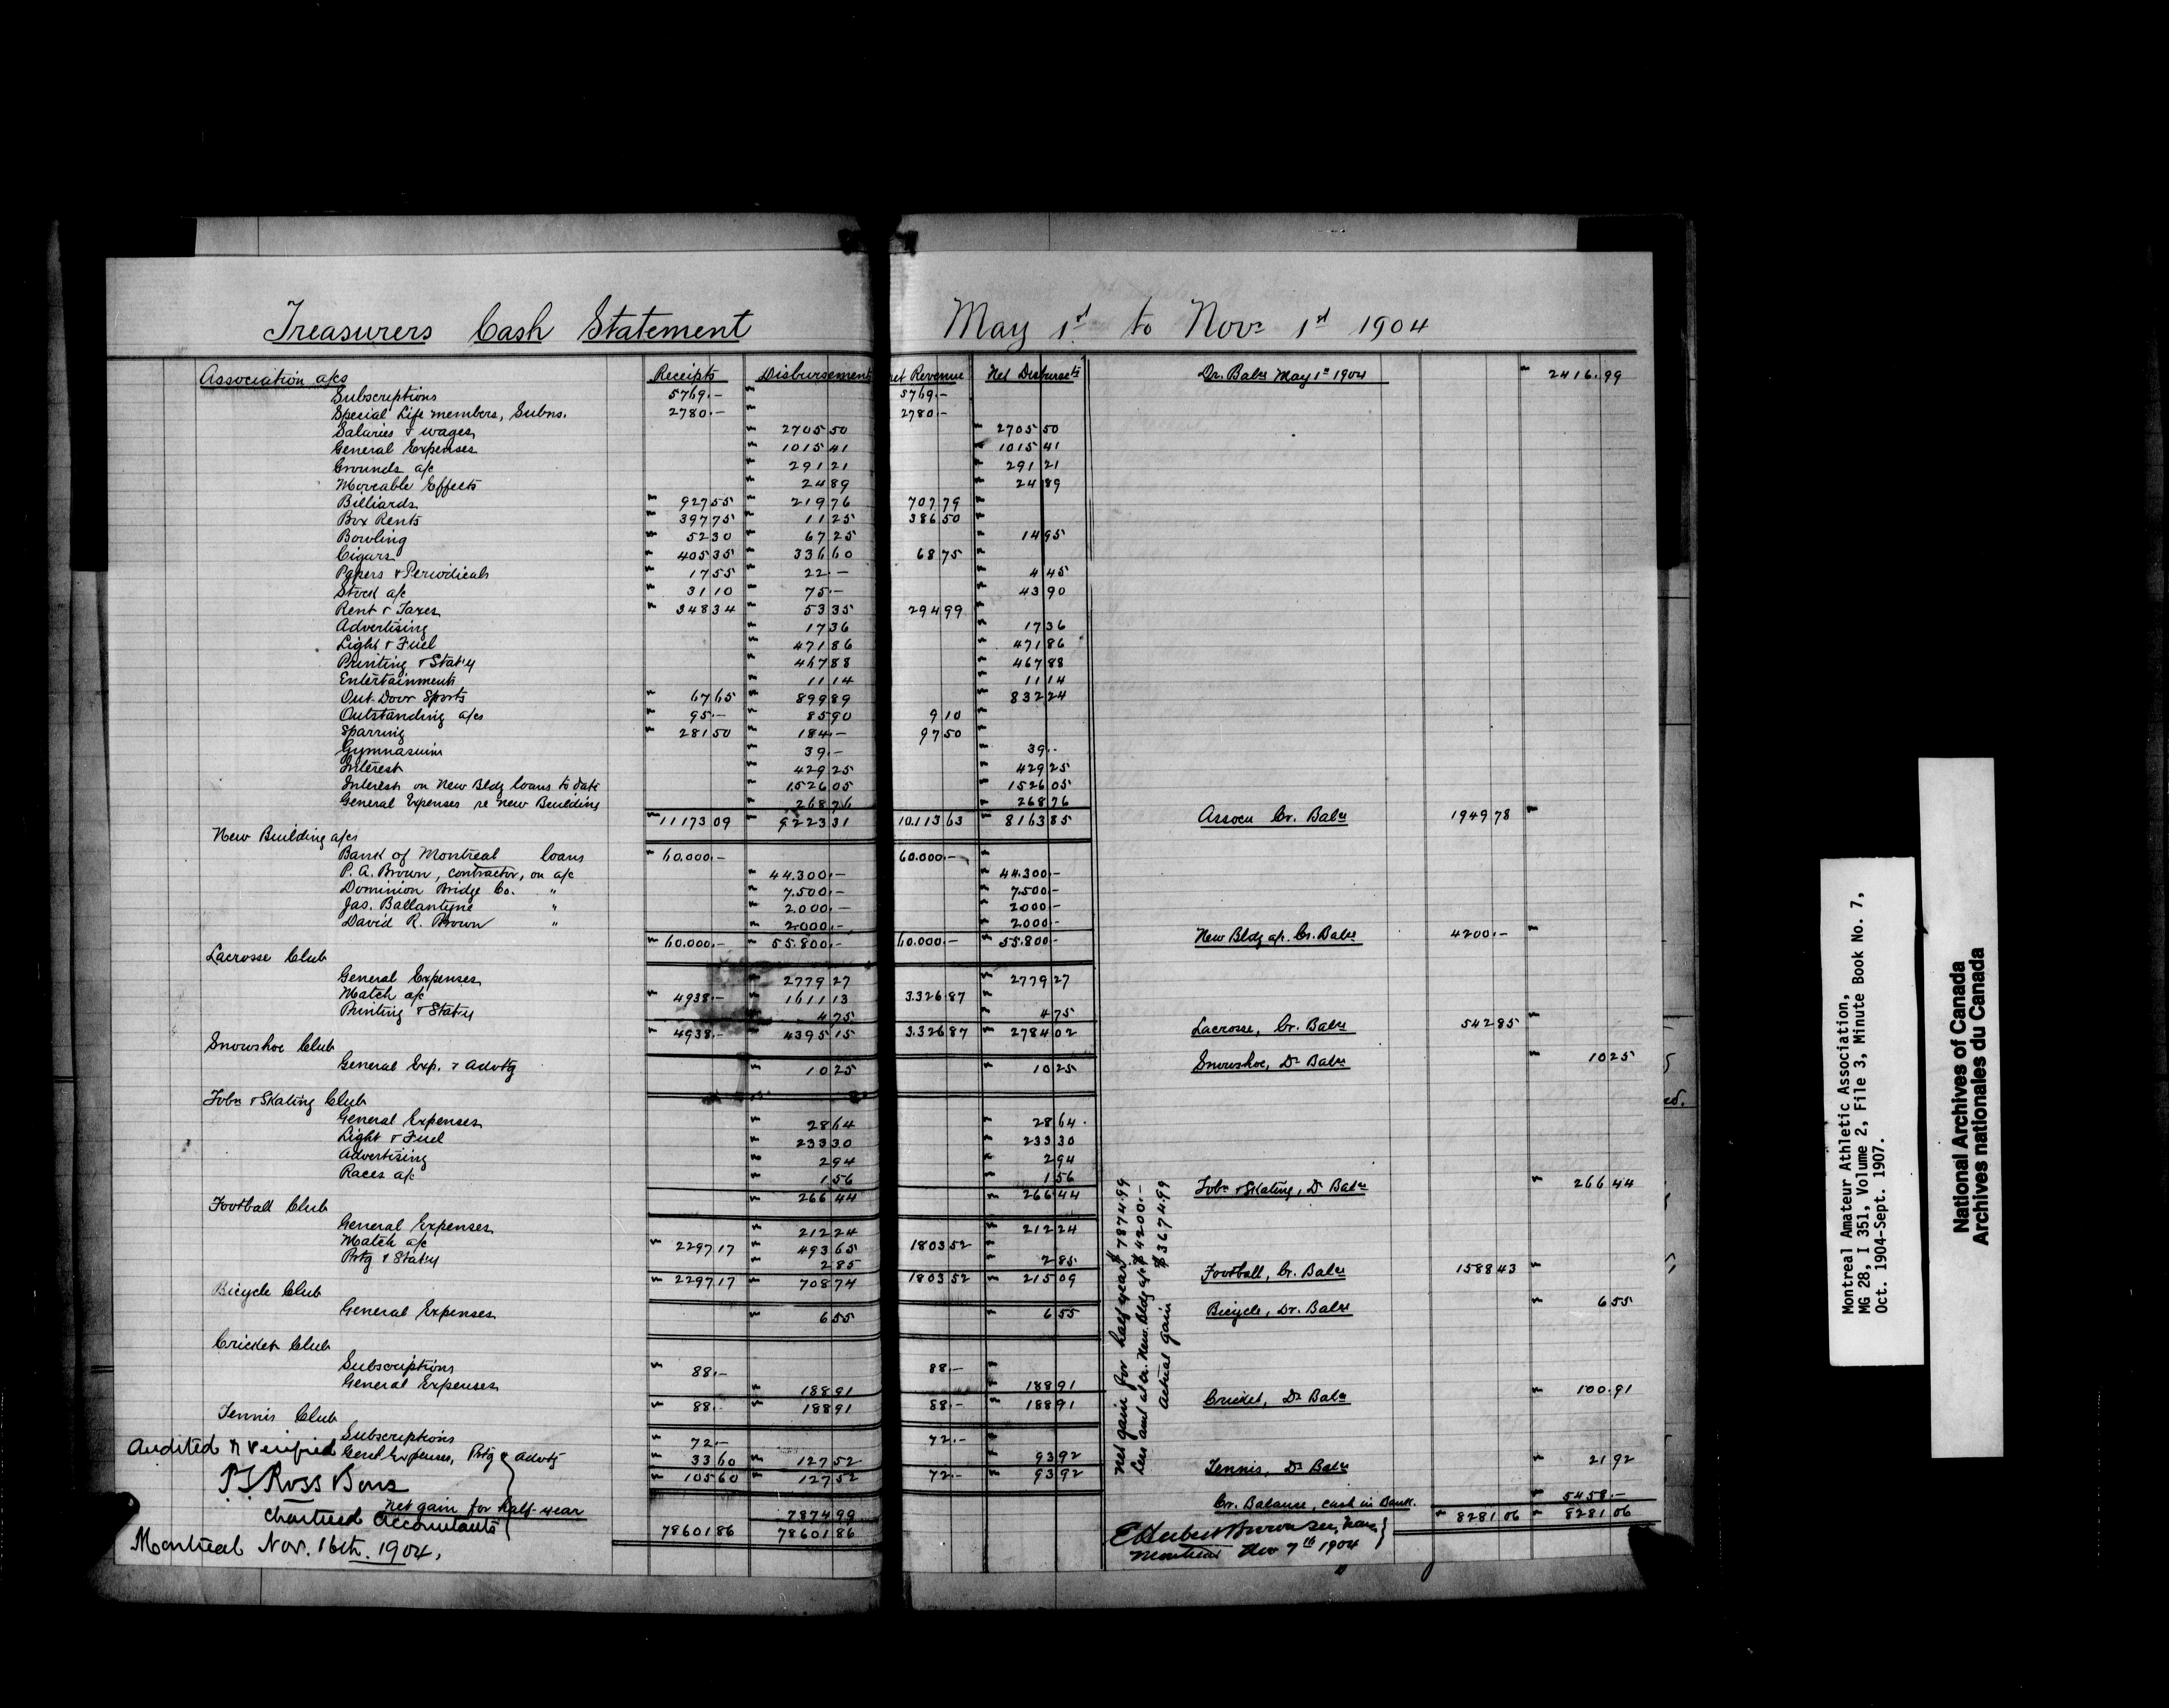 Treasurers Cash Statement May 1st to Novr 1st 1904
Association a/cs Receipts Disbursements Net Revenue Net Disbursets Dr. Balce May 1st 1904 2416.99
Subscriptions 5769.— 5769.—
Special Life members, Subns. 2780.— 2780.—
Salaries & wages 2705 50 2705 50
General Expenses 1015 41 1015 41
Grounds a/c 291 21 291 21
Moveable Effects 24 89 24 89
Billiards 927 55 219 76 707 79
Box Rents 397 75 11 25 386 50
Bowling 52 30 67 25 14 95
Cigars 405 35 336 60 68 75
Papers & Periodicals 17 55 22.— 4 45
Stock a/c 31 10 75.— 43 90
Rent & Taxes 348 34 53 35 294 99
Advertising 17 36 17 36
Light & Fuel 471 86 471 86
Printing & Stat'y 467 88 467 88
Entertainments 11 14 11 14
Out-Door Sports 67 65 899 89 832 24
Outstanding a/cs 95.— 85 90 9 10
Sparring 281 50 184.— 97 50
Gymnasium 39.— 39.—
Interest 429 25 429 25
Interest on New Bldg loans to date 1526 05 1526 05
General Expenses re New Building 268 76 268 76
11173 09 9223 31 10.113 63 8163 85 Assocn Cr. Balce 1949 78
New Building a/cs
Bank of Montreal loans 60.000.— 60.000.—
P. A. Brown, contractor, on a/c 44.300.— 44.300.—
Dominion Bridge Co. " 7.500.— 7.500—
Jas. Ballantyne " 2.000.— 2000—
David R. Brown " 2.000.— 2000—
60.000.— 55.800.— 60.000.— 55.800— New Bldg a/c. Cr. Balce 4200.—
Lacrosse Club
General Expenses 2779 27 2779 27
Match a/c 4938.— 1611 13 3.326 87
Printing & Stat'y 4 75 4 75
4938.— 4395 15 3.326 87 2784 02 Lacrosse, Cr. Balce 542 85
Snowshoe Club
General Exp. & Advtg 10 25 10 25 Snowshoe, Dr Balce 10 25
Tobn & Skating Club
General Expenses 28 64 28 64
Light & Fuel 233 30 233 30
Advertising 2 94 2 94
Races a/c 1 56 1 56
266 44 266 44 Tobn & Skating, Dr Balce 266 44
Football Club
General Expenses 212 24 212 24
Match a/c 2297 17 493 65 1803 52
Prtg & Stat'y 2 85 2 85
2297 17 708 74 1803 52 215 09 Football, Cr. Balce 1588 43
Bicycle Club
General Expenses 6 55 6 55 Bicycle, Dr. Balce 6 55
Cricket Club
Subscriptions 88.— 88.—
General Expenses 188 91 188 91
88.— 188 91 88.— 188 91 Cricket, Dr Balce 100.91
Tennis Club
Subscriptions 72.— 72.—
Genl Expenses, Prtg & Advtg 33 60 127 52 93 92
105 60 127 52 72.— 93 92 Tennis, Dr Balce 21 92
Net gain for half-year 7874 99
78601 86 78601 86
Cr. Balance, cash in Bank. 5458.—
8281 06 8281 06
Net gain for half year $7874.99
Less amt at cr. New Bldg a/c $4200.—
Actual gain $3674.99
Audited & Verified
P. S. Ross & Sons
Chartered Accountants
Montreal Nov. 16th. 1904.
E Herbert Brown
Montreal Nov 7th 1904
Montreal Amateur Athletic Association,
MG 28, I 351, Volume 2, File 3, Minute Book No. 7,
Oct. 1904-Sept. 1907.
National Archives of Canada
Archives nationales du Canada